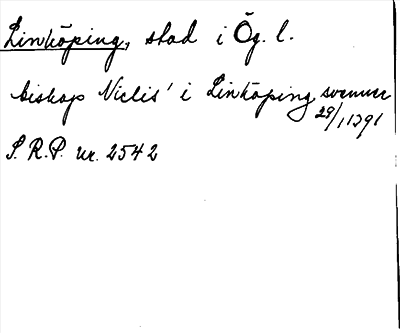 Linköping, stad i Ög. l.
biskop Niclis' i Linköping svenner
29/1 1391
S.R.P. nr. 2542